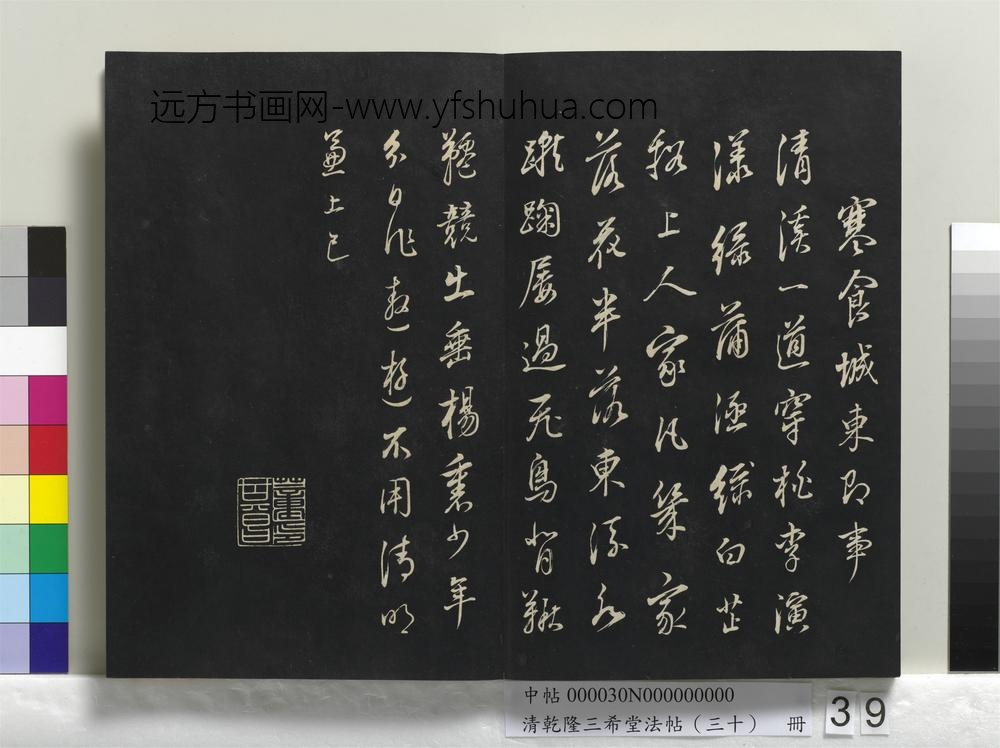 远方书画网-www.yfshuhua.com
寒食城東即事
清溪一道穿桃李演
漾綠蒲涵綠白芷
谿上人家凡幾家
落花半落東流水
蹴踘屢過飛鳥背鞦
韆競出垂楊裏少年
分日作遨遊不用清明
兼上巳
董印其昌
中帖 000030N000000000
清乾隆三希堂法帖（三十） 冊
39